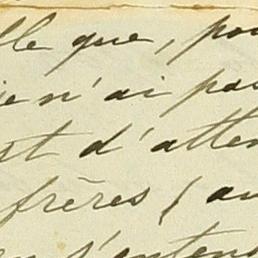 lle que, pou
je n'ai pas
st d'atten
frères (au
s'enten